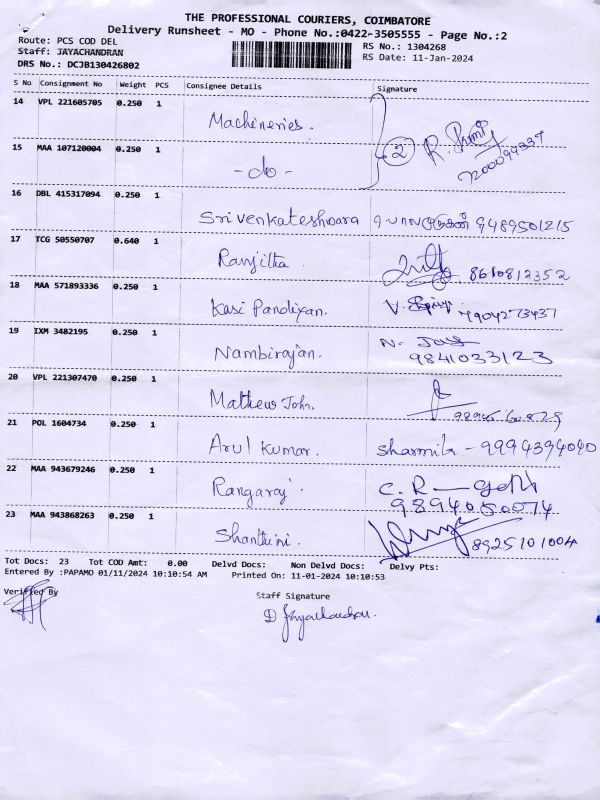 THE PROFESSIONAL COURIERS, COIMBATORE
Delivery Runsheet - MO - Phone No.:0422-3505555 - Page No.:2
Route: PCS COD DEL
RS No.: 1304268
Staff: JAYACHANDRAN
RS Date: 11-Jan-2024
DRS No.: DCJB130426802
S No Consignment No Weight PCS Consignee Details Signature
14 VPL 221605705 0.250 1
Machineries.
2 R.
7200094337
15 MAA 107120004 0.250 1
-do-
16 DBL 415317094 0.250 1
Srivenkateshwara பாலமுருகன் 9489501215
17 TCG 50550707 0.640 1
Ranjitha 8610812352
18 MAA 571893336 0.250 1
Kasi Pandiyan. V. 7904273437
19 IXM 3482195 0.250 1
Nambirajan. N.
9841033123
20 VPL 221307470 0.250 1
Mathew John.
21 POL 1604734 0.250 1
Arul Kumar. Sharmila - 9994394040
22 MAA 943679246 0.250 1
Rangaraj C.R
9894050074
23 MAA 943868263 0.250 1
Shanthini. 8925101004
Tot Docs: 23 Tot COD Amt: 0.00 Delvd Docs: Non Delvd Docs: Delvy Pts:
Entered By :PAPAMO 01/11/2024 10:10:54 AM Printed On: 11-01-2024 10:10:53
Verified By Staff Signature
D Jayachandran.